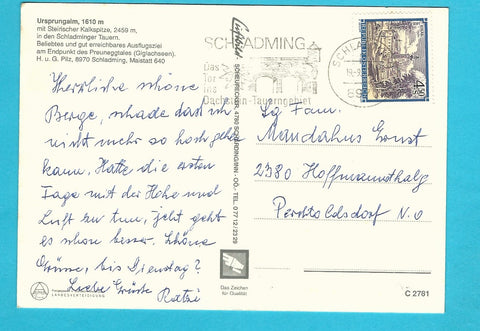 Ursprungalm, 1610 m
mit Steirischer Kalkspitze, 2459 m,
in den Schladminger Tauern.
Beliebtes und gut erreichbares Ausflugsziel
am Endpunkt des Preuneggtales (Giglachseen).
H. u. G. Pilz, 8970 Schladming, Maistatt 640
Herzliche schöne
Berge, schade dass ich
nicht mehr so hoch gehen
kann. Hatte die ersten
Tage mit der Höhe und
Luft zu tun, jetzt geht
es schon besser. Schöne
Grüsse, bis Dienstag?
Liebe Grüsse
LANDESVERTEIDIGUNG
SCHLADMING
Das
Tor
ins
Dachstein-Tauerngebiet
SCHLA
REPUBLIK ÖSTERREICH
Sg Fam.
Ernst
2380
Perchtoldsdorf N.Ö
Das Zeichen
für Qualität
C 2781